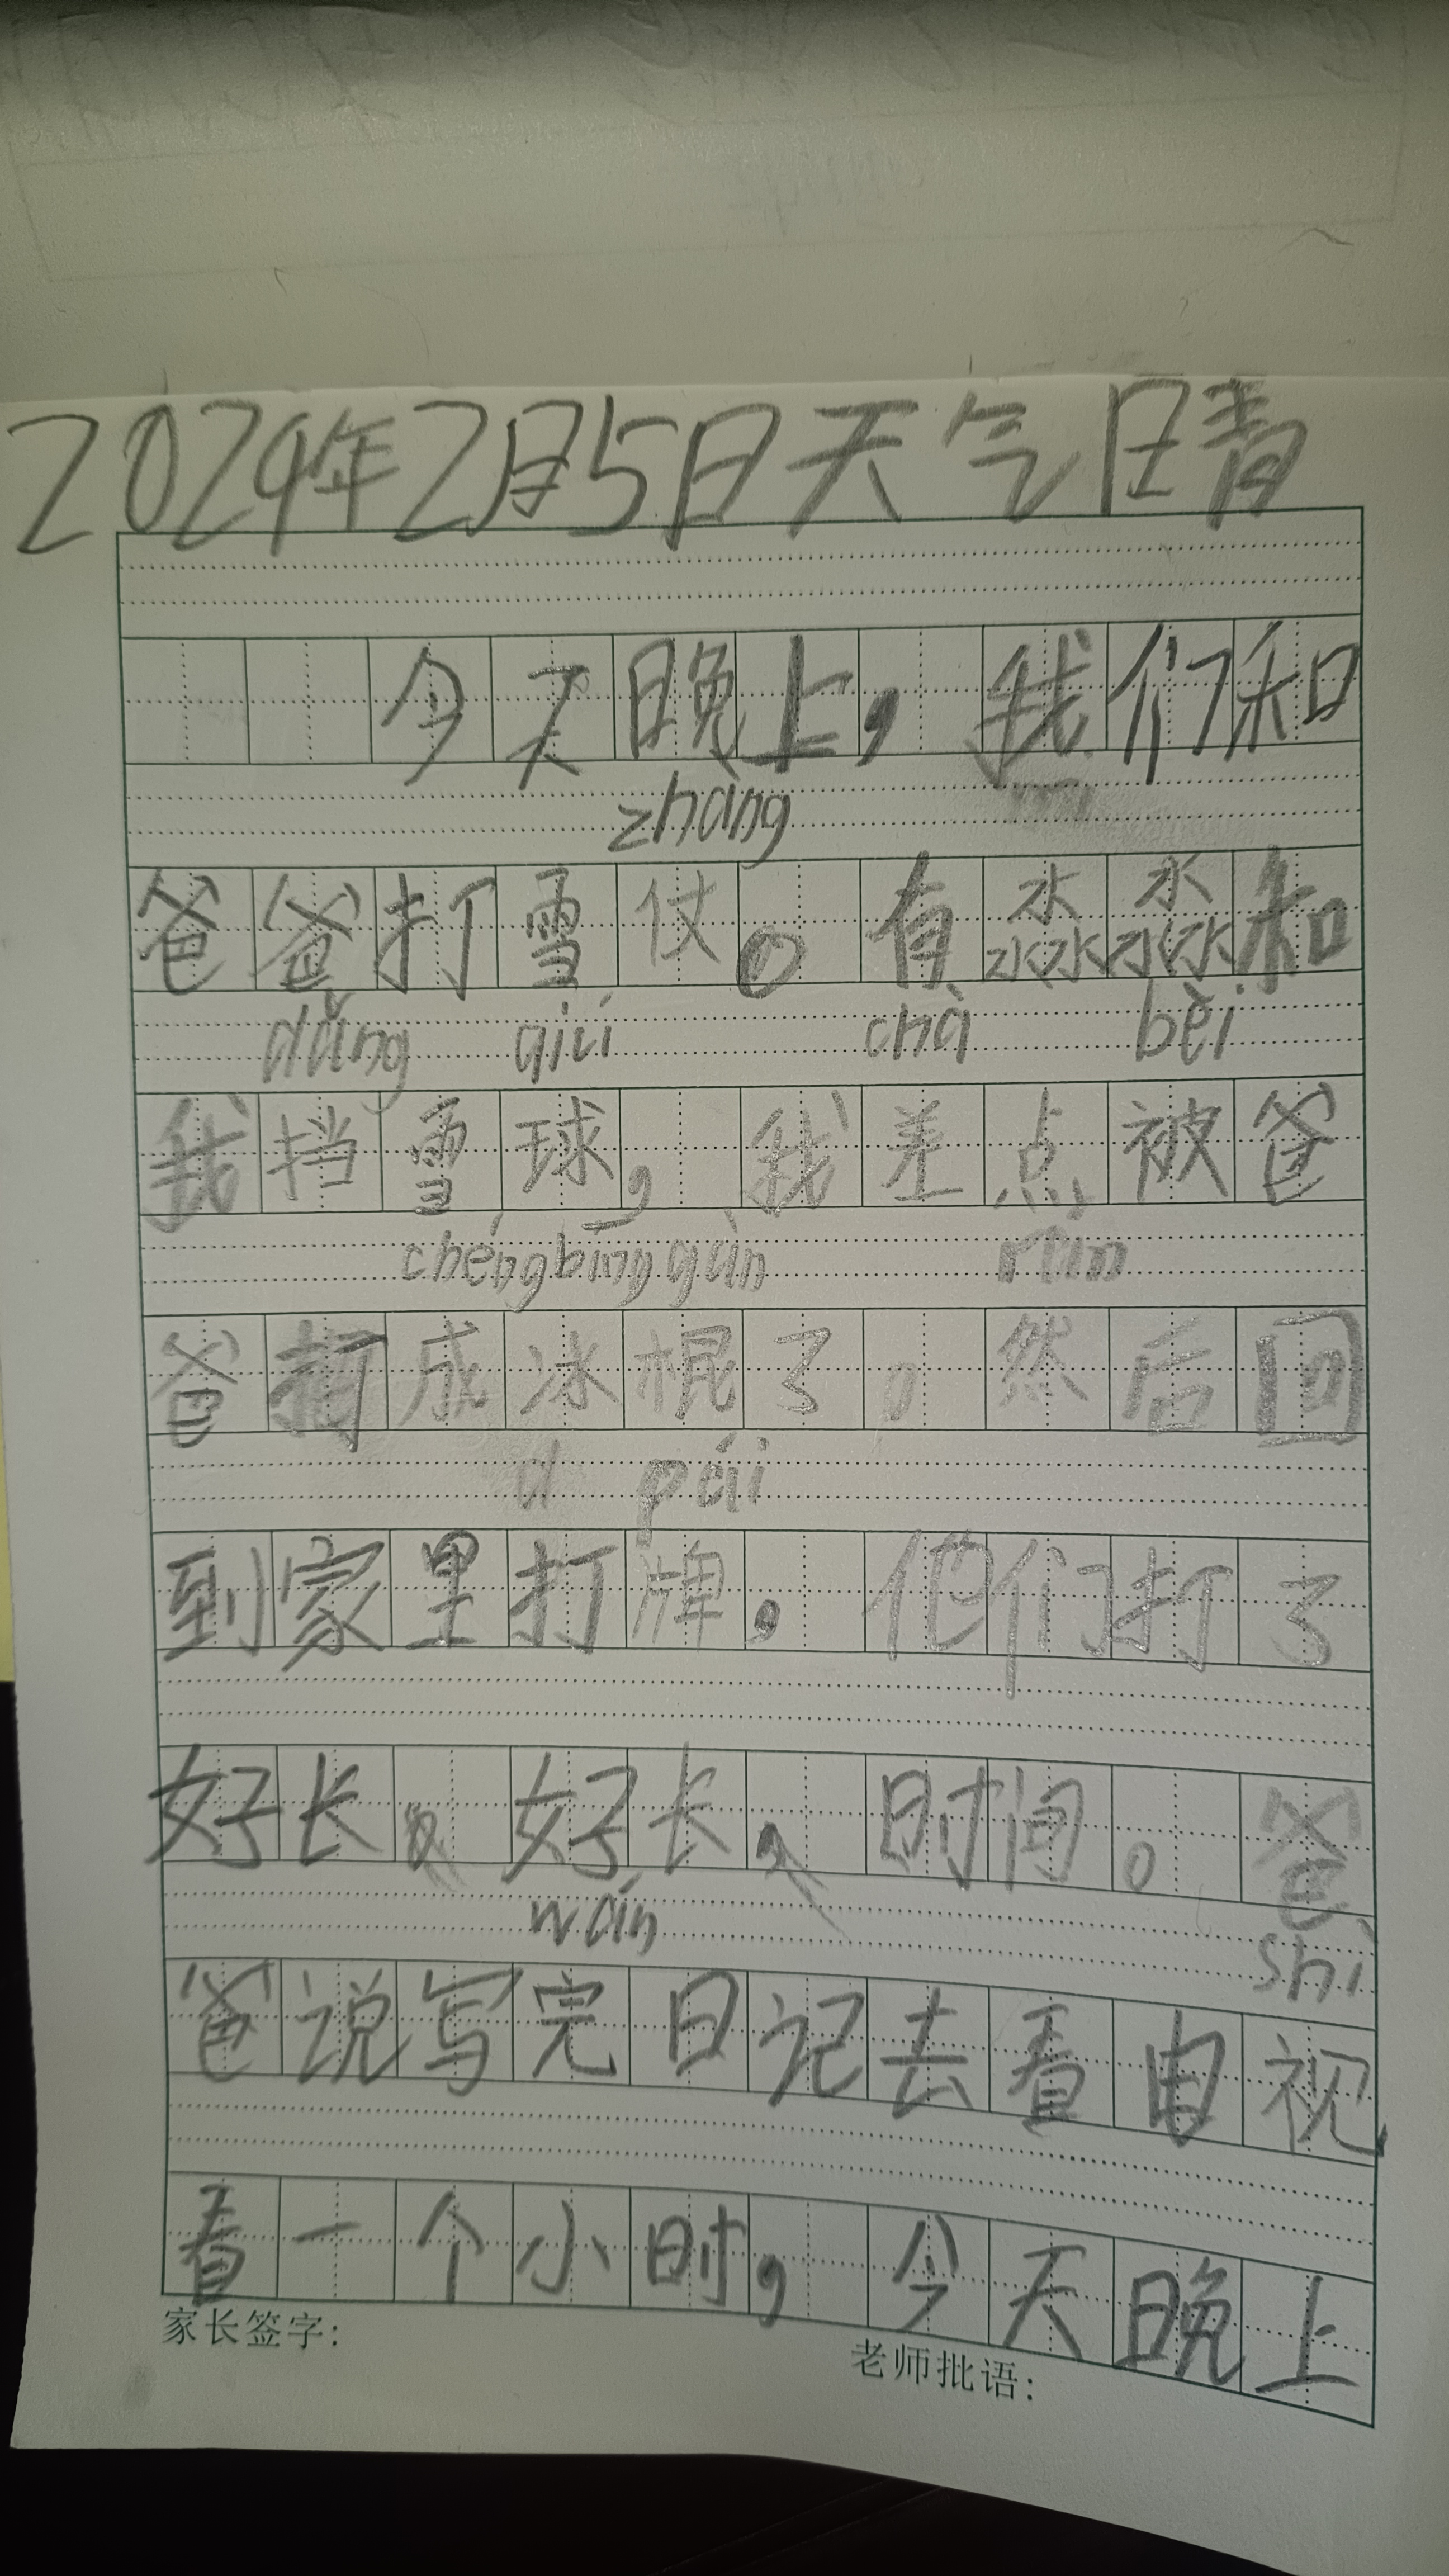 2024年2月5日天气晴
今天晚上，我们和
zhàng
爸爸打雪仗。有淼淼和
dǎng qiú chà bèi
我挡雪球，我差点被爸
chéngbīnggùn rán
爸打成冰棍了。然后回
d pái
到家里打牌，他们打了
好长、好长、时间。爸
wán shì
爸说写完日记去看电视
看一个小时，今天晚上
家长签字：
老师批语：